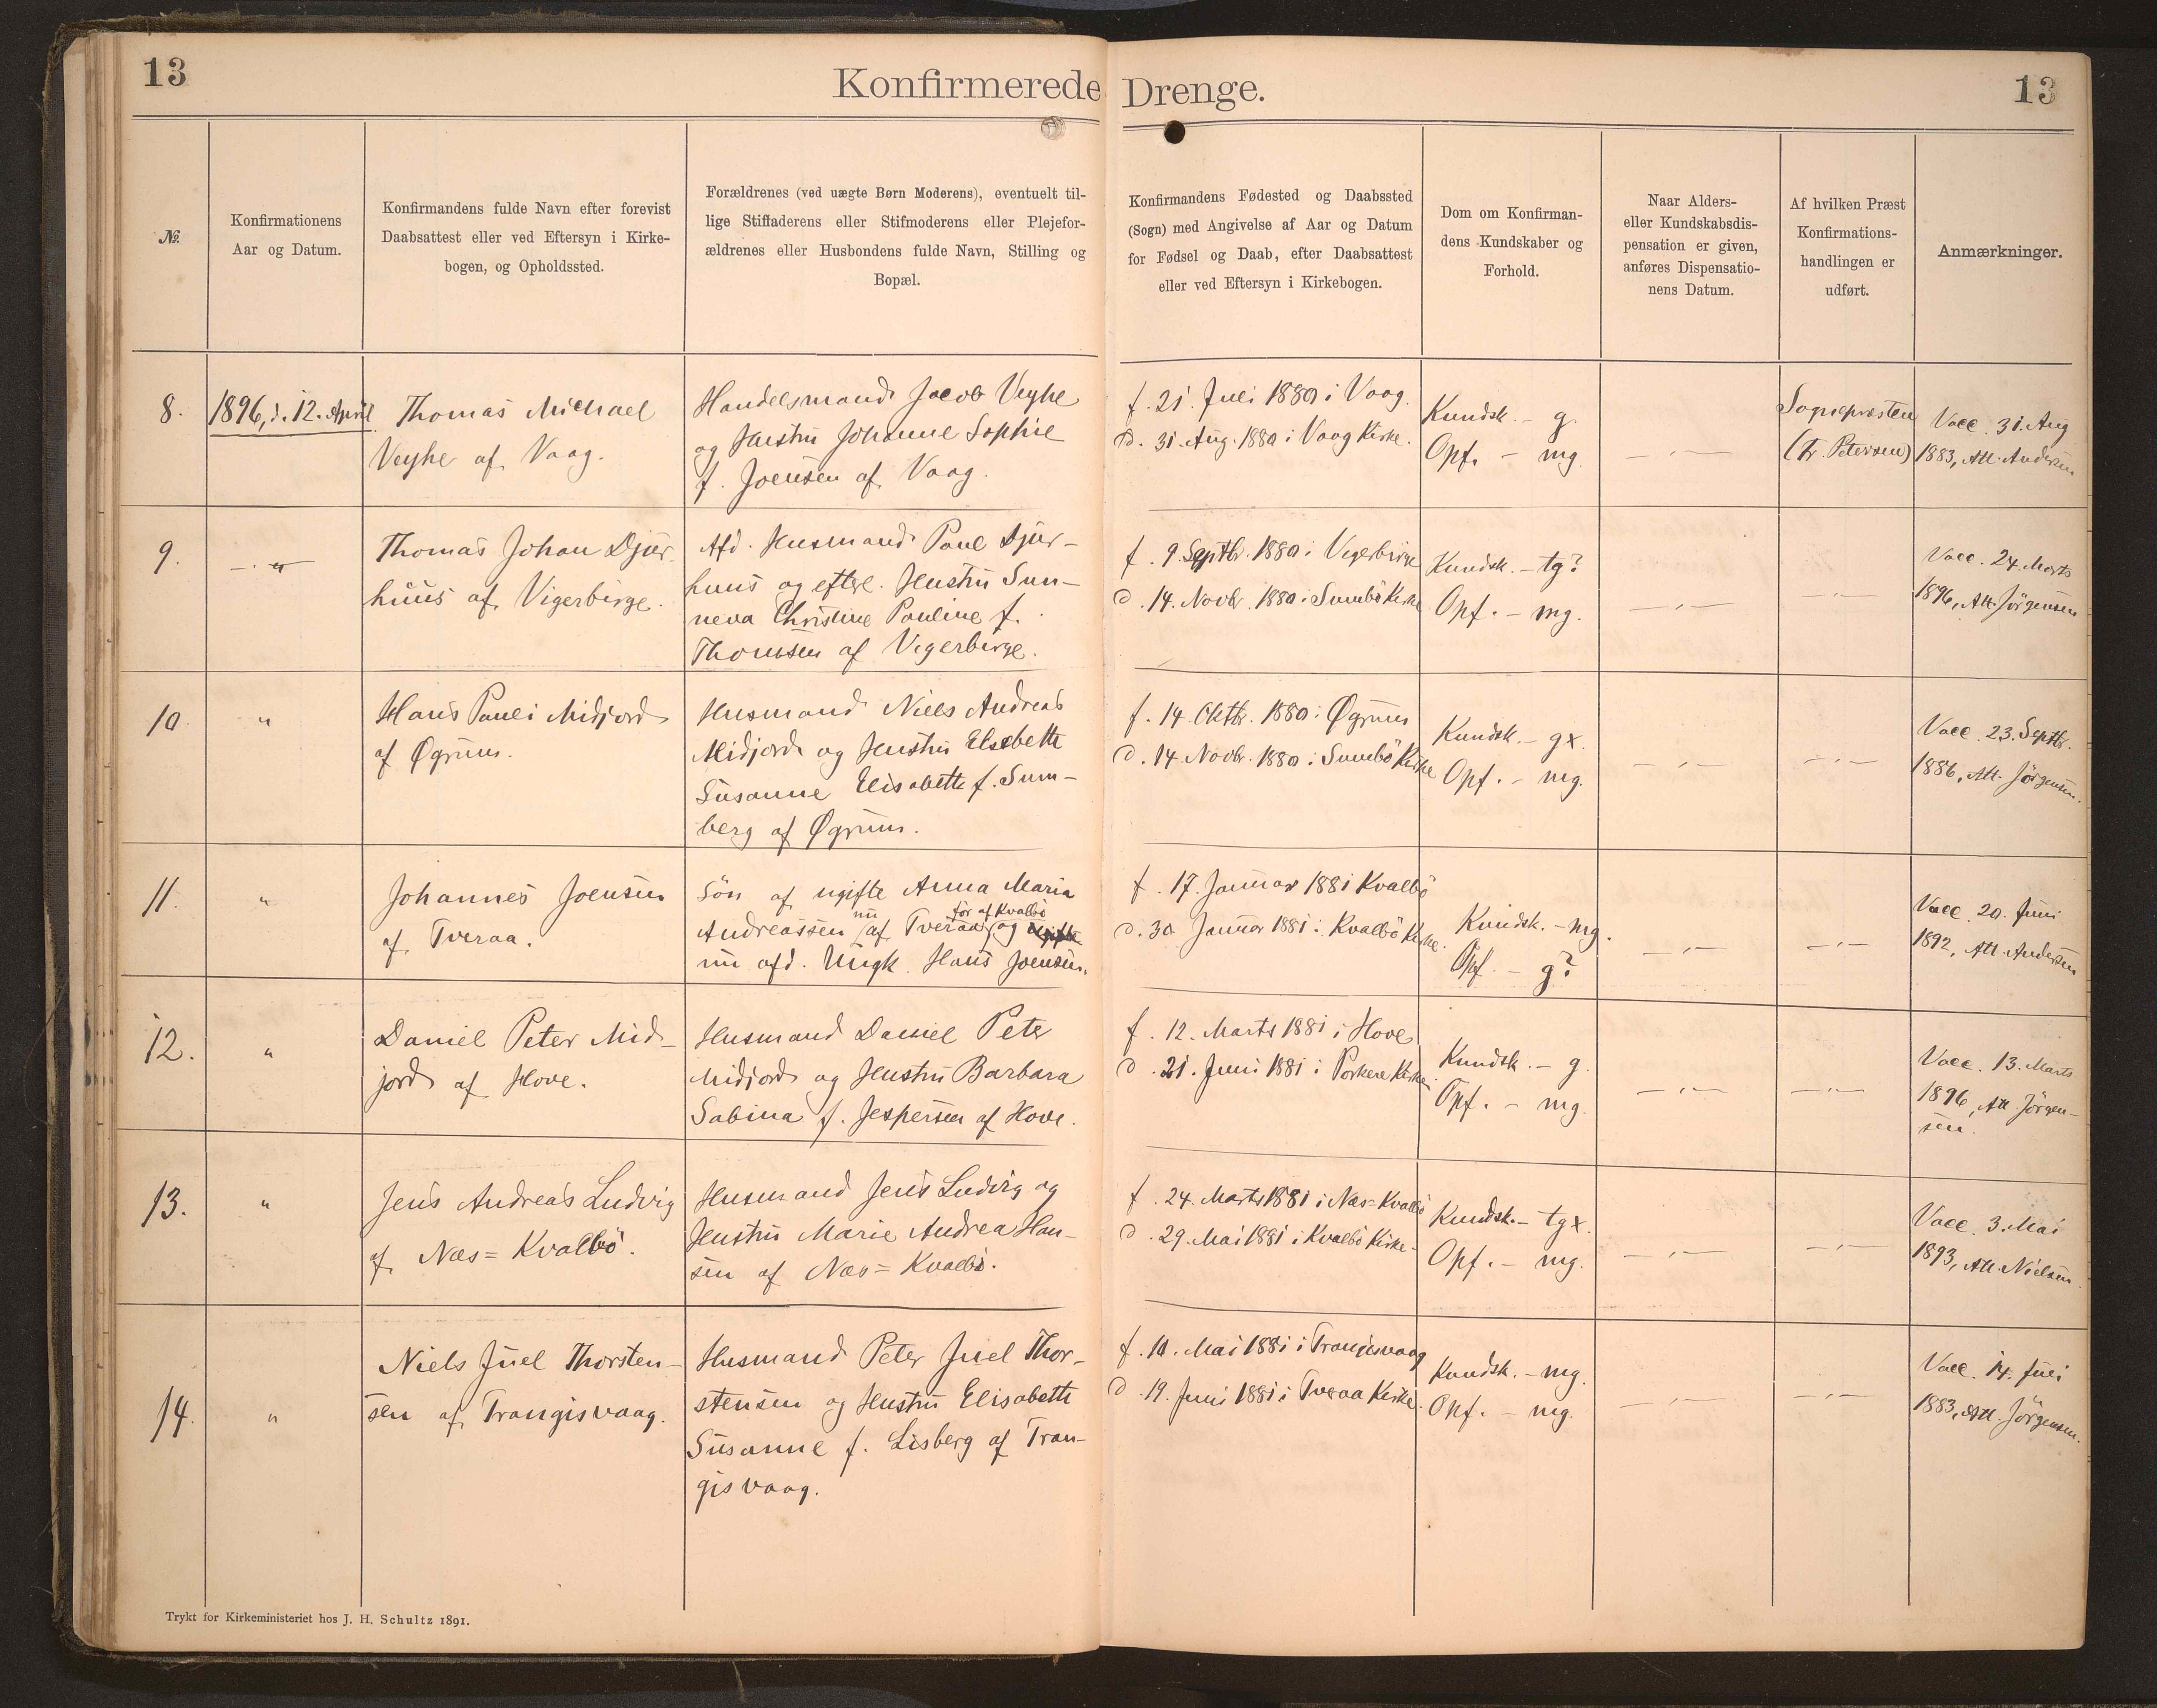 13
Konfirmerede Drenge.
13
№.
Konfirmationens
Aar og Datum.
Konfirmandens fulde Navn efter forevist
Daabsattest eller ved Eftersyn i Kirke-
bogen, og Opholdssted.
Forældrenes (ved uægte Børn Moderens), eventuelt til-
lige Stiffaderens eller Stifmoderens eller Plejefor-
ældrenes eller Husbondens fulde Navn, Stilling og
Bopæl.
Konfirmandens Fødested og Daabssted
(Sogn) med Angivelse af Aar og Datum
for Fødsel og Daab, efter Daabsattest
eller ved Eftersyn i Kirkebogen.
Dom om Konfirman-
dens Kundskaber og
Forhold.
Naar Alders-
eller Kundskabsdis-
pensation er given,
anføres Dispensatio-
nens Datum.
Af hvilken Præst
Konfirmations-
handlingen er
udført.
Anmærkninger.
8.
1896, d. 12. April
Thomas Michael
Veyhe af Vaag.
Handelsmand Jacob Veyhe
og Hustru Johanne Sophie
f. Joensen af Vaag.
f. 21. Juli 1880 i Vaag.
d. 31. Aug. 1880 i Vaag Kirke.
Kundsk. - g.
Opf. - mg.
— „ —
Sognepræsten
(Fr. Petersen)
Vacc. 31. Aug
1883, Att. Andersen
9.
— „ —
Thomas Johan Djur-
huus af Vigerbirge.
Afd. Husmand Poul Djur-
huus og efterl. Hustru Sun-
neva Christine Pauline f.
Thomsen af Vigerbirge.
f. 9. Septbr. 1880 i Vigerbirge
d. 14. Novbr. 1880 i Sumbö Kirke
Kundsk. - tg?
Opf. - mg.
— „ —
— „ —
Vacc. 24. Marts
1896, Att. Jörgensen
10.
"
Hans Pauli Midjord
af Øgrum.
Husmand Niels Andreas
Midjord og Hustru Elsebette
Susanne Elisabeth f. Sum-
berg af Øgrum.
f. 14. Oktbr. 1880 i Øgrum
d. 14. Novbr. 1880 i Sumbö Kirke
Kundsk. - gx.
Opf. - mg.
— „ —
— „ —
Vacc. 23. Septbr.
1886, Att. Jörgensen.
11.
"
Johannes Joensen
af Tveraa.
Sön af ugifte Anna Maria
nu för af Kvalbö
Andreassen af Tveraa, og ugifte
nu afd. Ungk. Hans Joensen.
f. 17. Januar 1881 Kvalbö
d. 30 Januar 1881 i Kvalbö Kirke.
Kundsk. - mg.
Opf. - g?
— „ —
— „ —
Vacc. 20. Juni
1892, Att. Andersen
12.
"
Daniel Peter Mid-
jord af Hove.
Husmand Daniel Peter
Midjord og Hustru Barbara
Sabina f. Jespersen af Hove.
f. 12. Marts 1881 i Hove
d. 21. Juni 1881 i Porkere Kirke.
Kundsk. - g.
Opf. - mg.
— „ —
— „ —
Vacc. 13. Marts
1896, Att. Jörgen-
sen.
13.
"
Jens Andreas Ludvig
af Næs=Kvalbö.
Husmand Jens Ludvig og
Hustru Marie Andrea Han-
sen af Næs=Kvalbö.
f. 24. Marts 1881 i Næs=Kvalbö
d. 29. Mai 1881 i Kvalbö Kirke.
Kundsk. - tgx.
Opf. - mg.
— „ —
— „ —
Vacc. 3. Mai
1893, Att. Nielsen.
14.
"
Niels Juel Thorsten-
sen af Trangisvaag.
Husmand Peter Juel Thor-
stensen og Hustru Elisabeth
Susanne f. Lisberg af Tran-
gisvaag.
f. 10. Mai 1881 i Trangisvaag
d. 19. Juni 1881 i Tveraa Kirke.
Kundsk. - mg.
Opf. - mg.
— „ —
— „ —
Vacc. 14. Juli
1883, Att. Jörgensen.
Trykt for Kirkeministeriet hos J. H. Schultz 1891.